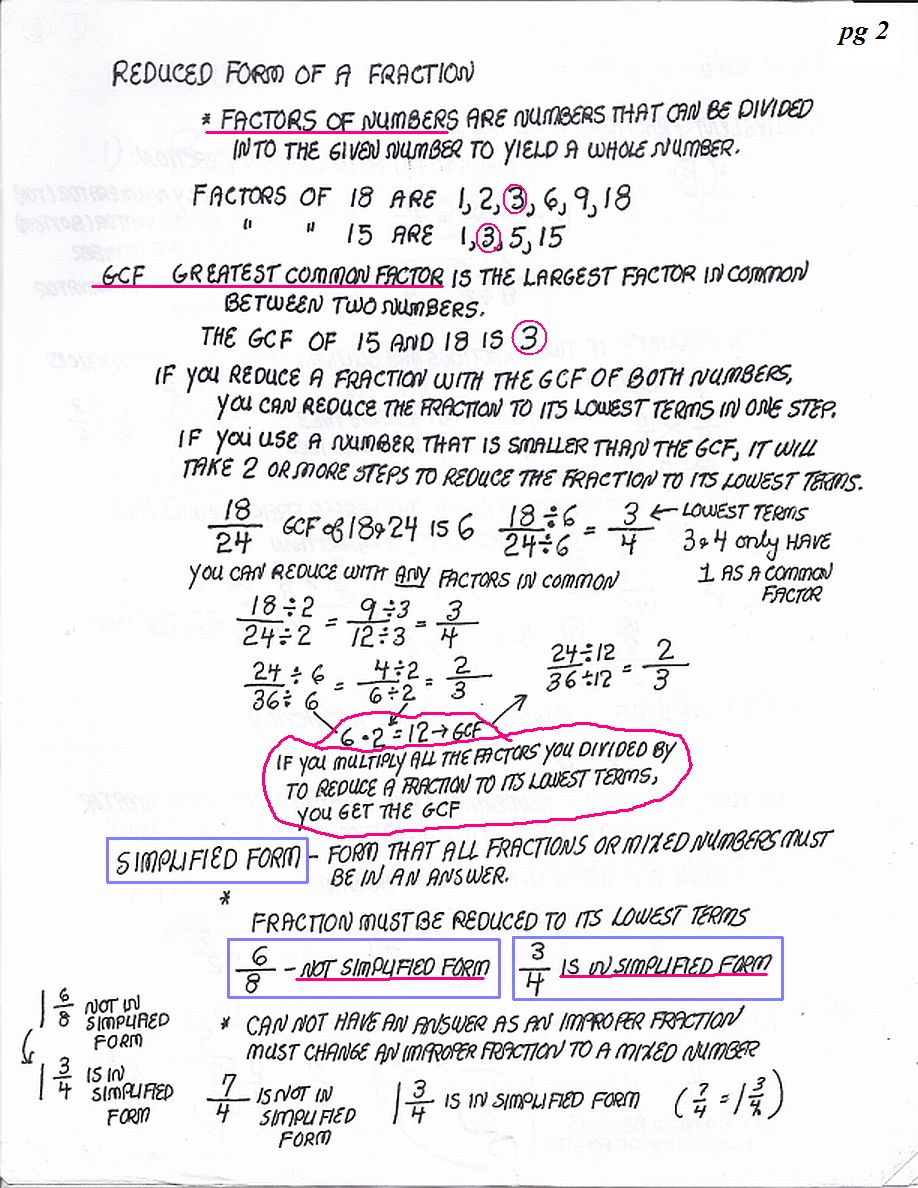 pg 2
REDUCED FORM OF A FRACTION
* FACTORS OF NUMBERS ARE NUMBERS THAT CAN BE DIVIDED
INTO THE GIVEN NUMBER TO YIELD A WHOLE NUMBER.
FACTORS OF 18 ARE 1, 2, 3, 6, 9, 18
" " 15 ARE 1, 3, 5, 15
GCF GREATEST COMMON FACTOR IS THE LARGEST FACTOR IN COMMON
BETWEEN TWO NUMBERS.
THE GCF OF 15 AND 18 IS 3
IF YOU REDUCE A FRACTION WITH THE GCF OF BOTH NUMBERS,
YOU CAN REDUCE THE FRACTION TO ITS LOWEST TERMS IN ONE STEP.
IF YOU USE A NUMBER THAT IS SMALLER THAN THE GCF, IT WILL
TAKE 2 OR MORE STEPS TO REDUCE THE FRACTION TO ITS LOWEST TERMS.
18/24 GCF of 18 & 24 IS 6 18÷6/24÷6 = 3/4 ← LOWEST TERMS
3 & 4 only HAVE
1 AS A COMMON
FACTOR
YOU CAN REDUCE WITH ANY FACTORS IN COMMON
18÷2/24÷2 = 9÷3/12÷3 = 3/4
24÷6/36÷6 = 4÷2/6÷2 = 2/3 24÷12/36÷12 = 2/3
6 • 2 = 12 → GCF
IF YOU MULTIPLY ALL THE FACTORS YOU DIVIDED BY
TO REDUCE A FRACTION TO ITS LOWEST TERMS,
YOU GET THE GCF
SIMPLIFIED FORM - FORM THAT ALL FRACTIONS OR MIXED NUMBERS MUST
BE IN AN ANSWER.
*
FRACTION MUST BE REDUCED TO ITS LOWEST TERMS
6/8 - NOT SIMPLIFIED FORM 3/4 IS IN SIMPLIFIED FORM
1 6/8 NOT IN
SIMPLIFIED
FORM
1 3/4 IS IN
SIMPLIFIED
FORM
* CAN NOT HAVE AN ANSWER AS AN IMPROPER FRACTION
MUST CHANGE AN IMPROPER FRACTION TO A MIXED NUMBER
7/4 IS NOT IN
SIMPLIFIED
FORM
1 3/4 IS IN SIMPLIFIED FORM (7/4 = 1 3/4)